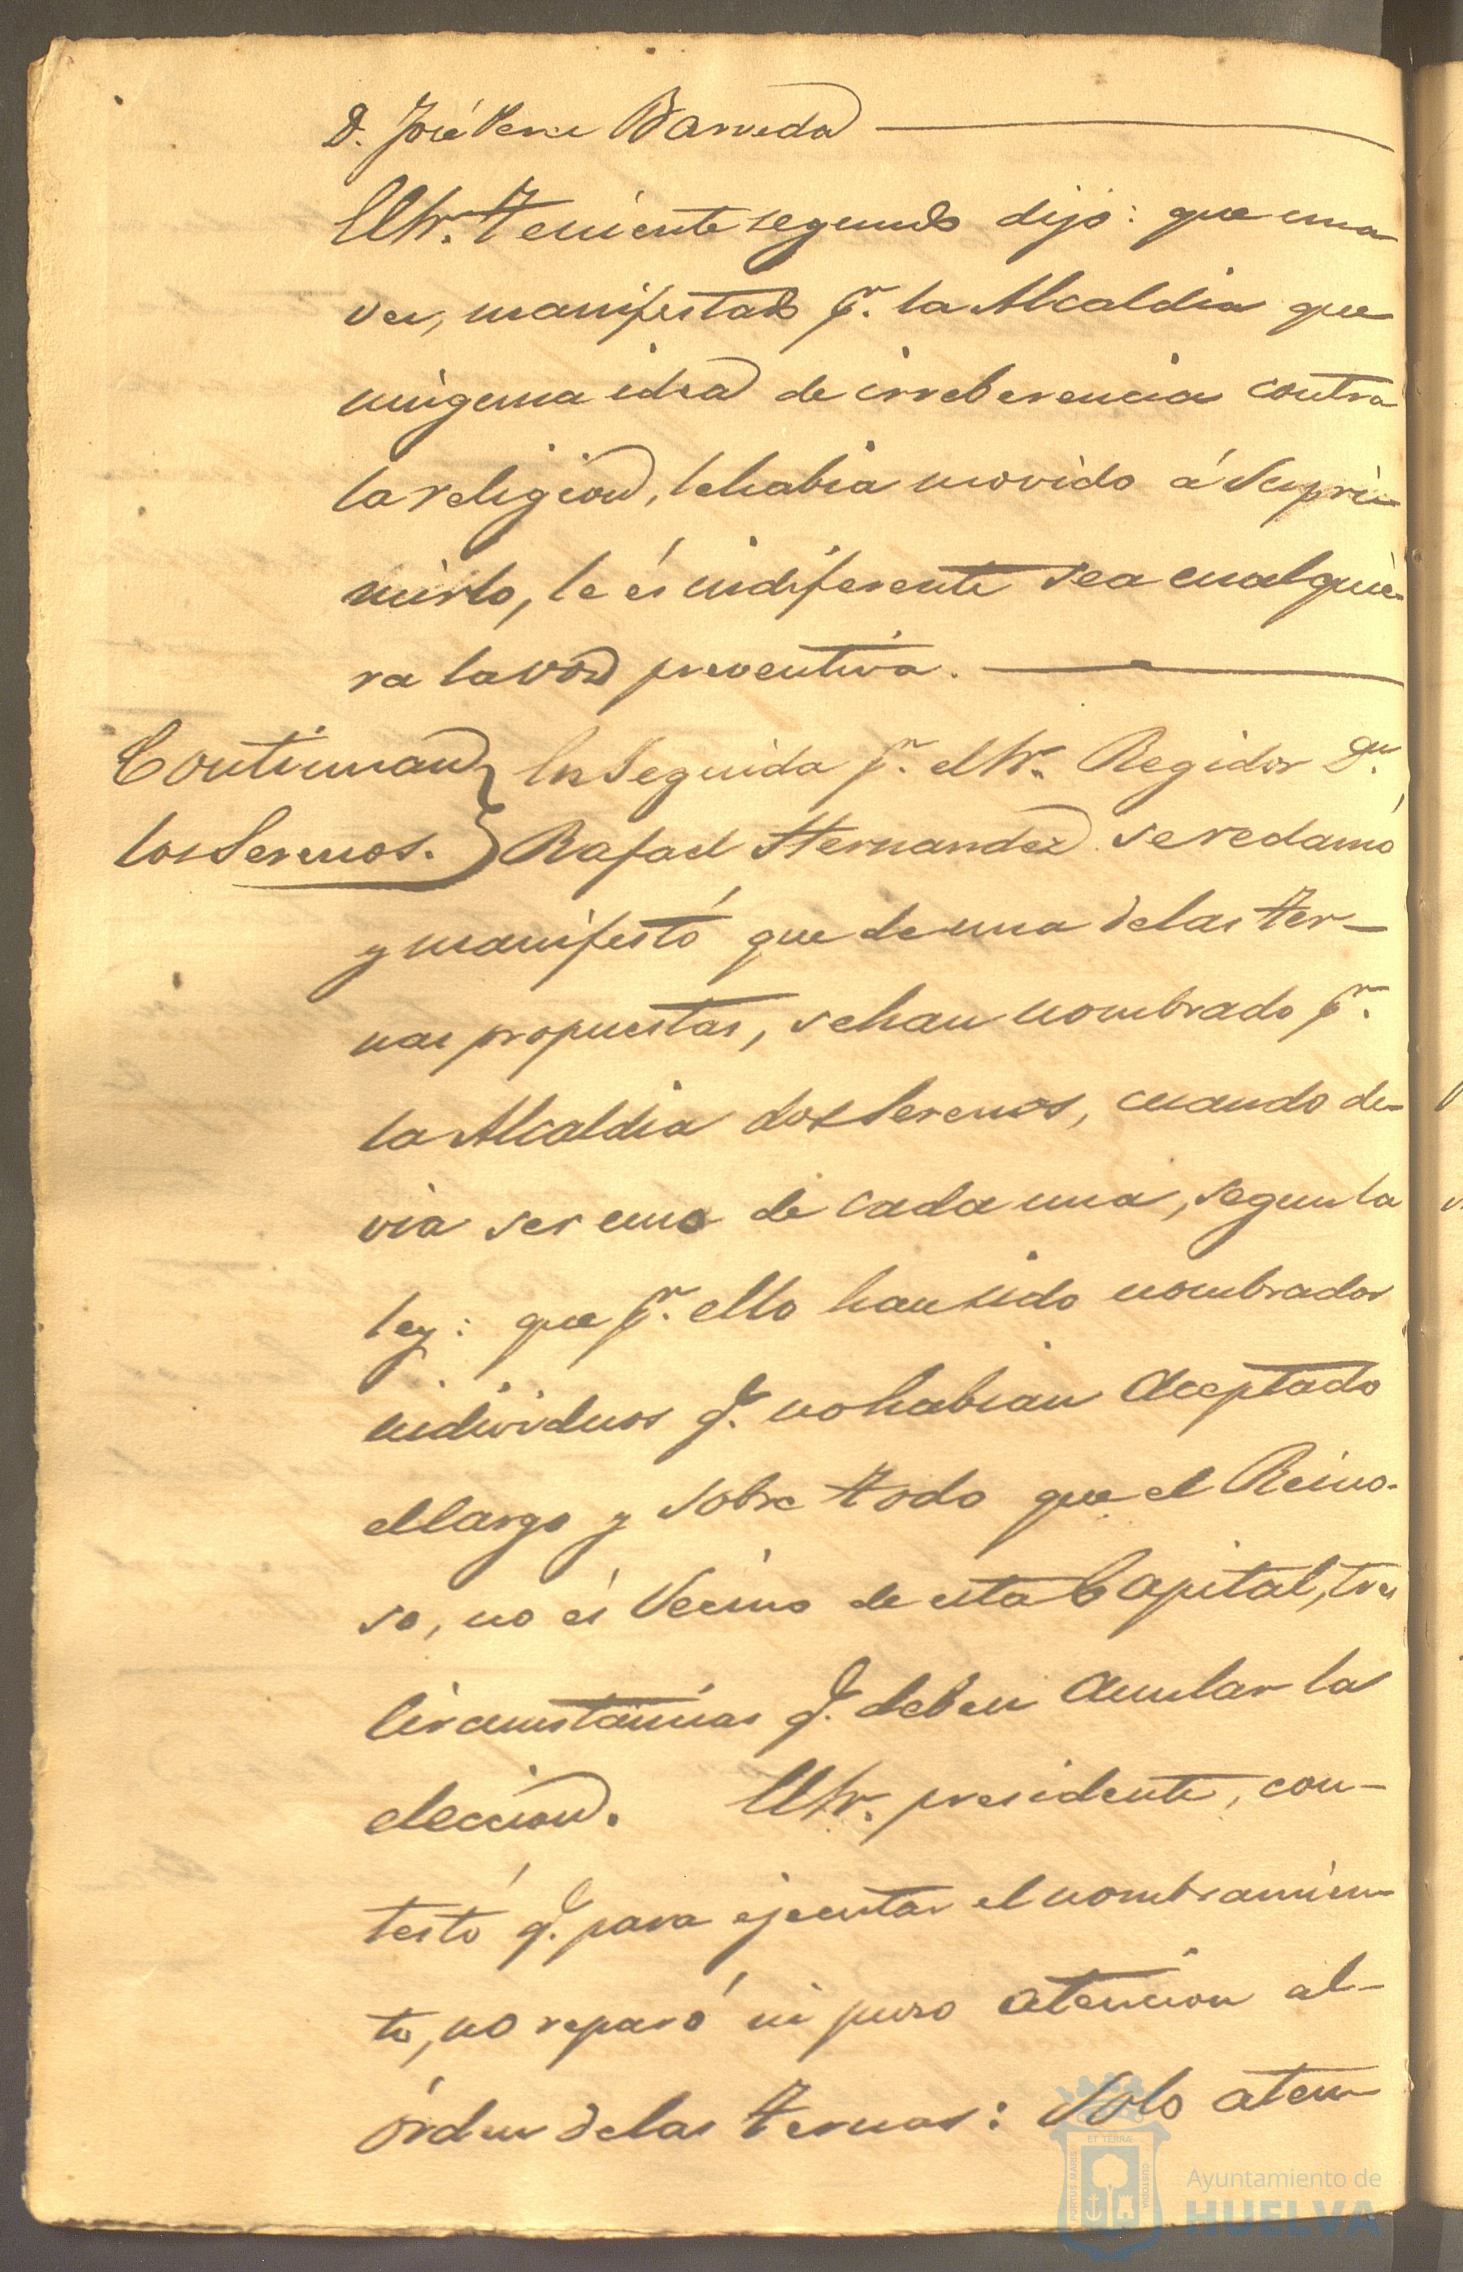 D. José Barreda
El Sr. Teniente segundo dijo: que una
vez, manifestado pr. la Alcaldia que
ninguna idea de irreberencia contra
la religion, le habia movido á supri-
mirlo, le és indiferente sea cualquie-
ra la voz preventiva.
Continuan
los Serenos.
En Seguida pr. el Sr. Regidor Dn.
Rafael Hernandez se reclamó
y manifestó que de una de las ter-
nas propuestas, se han nombrado pr.
la Alcaldia dos Serenos, cuando de-
via ser uno de cada una, segun la
ley: que pr. ello han sido nombrados
individuos q. no habian Aceptado
el Cargo y sobre todo que el Reino-
so, no és Vecino de esta Capital, tres
Circunstancias q. deben Anular la
eleccion. El Sr. presidente, con-
testó q. para ejecutar el nombramien-
to, no reparó ni puso atencion al
órden de las ternas: Solo aten-
PORTUS MARIS
ET TERRÆ
CUSTODIA
Ayuntamiento de
HUELVA